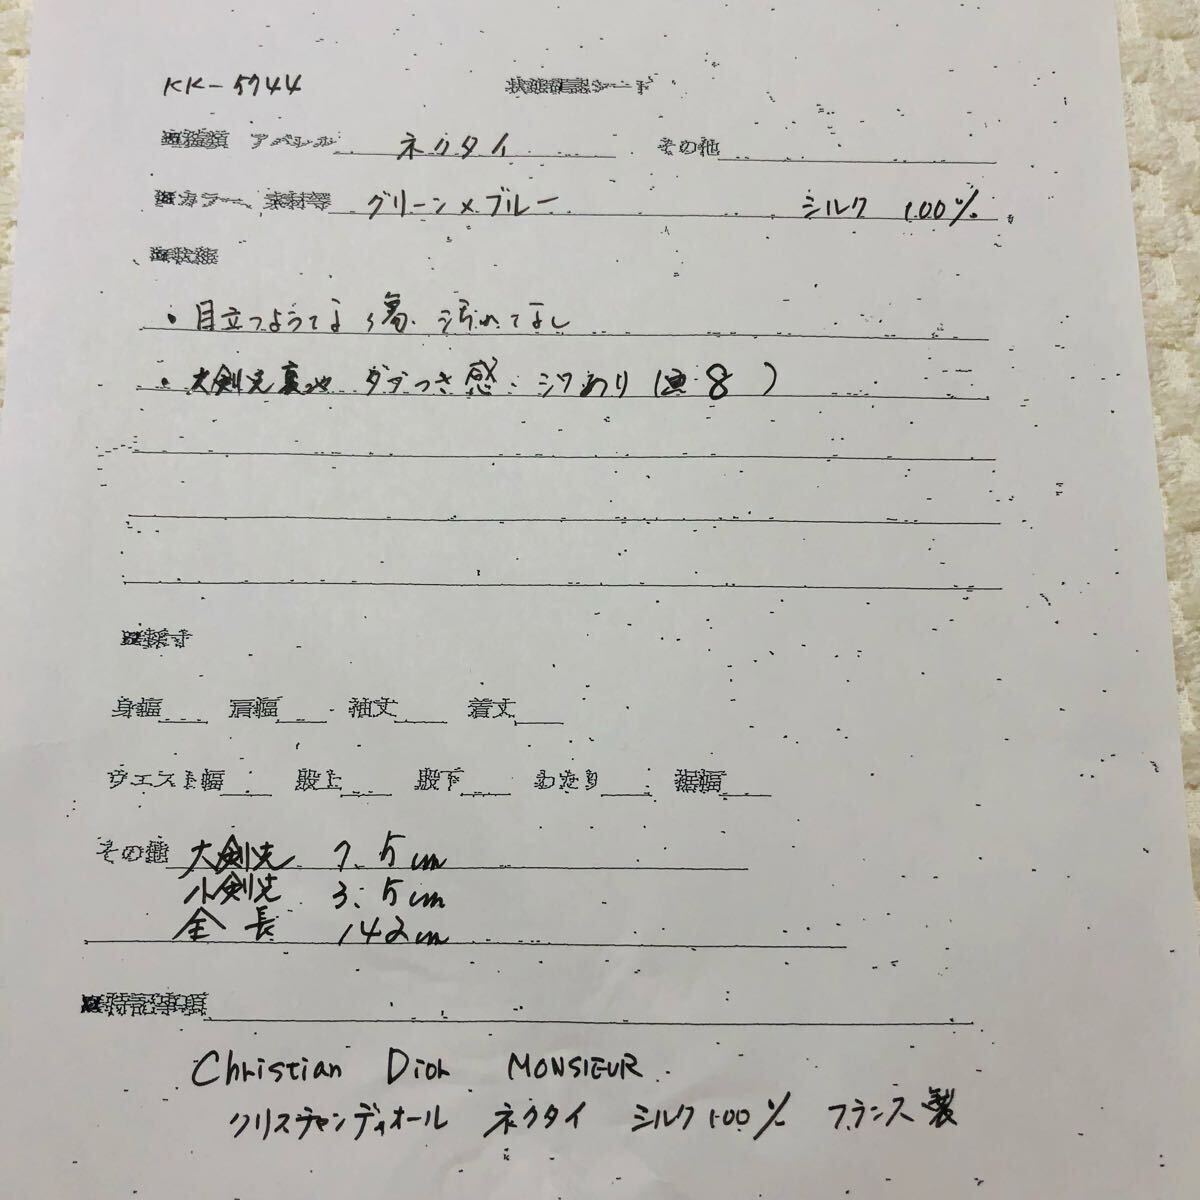 KK-5744 状態確認シート
■種類 アパレル ネクタイ その他
■カラー、素材等 グリーン×ブルー シルク 100%
■状態
・目立つようてな 傷、汚れてなし
・大剣先裏地 ダブつき感、シワあり(画 8)
■採寸
身幅 肩幅 袖丈 着丈
ウエスト幅 股上 股下 わたり 裾幅
その他 大剣先 7.5cm
小剣先 3.5cm
全長 142cm
■特記事項
Christian Dior MONSIEUR
クリスチャンディオール ネクタイ シルク100% フランス製